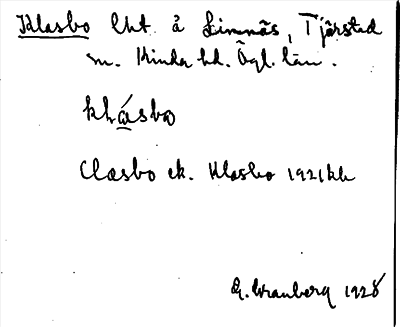 Klasbo lht å Limnäs, Tjärstad
sn. Kinda hd. Ögl. län.
klásbo
Clasbo ek. Klasbo 1921 kk
G. Cranberg 1928